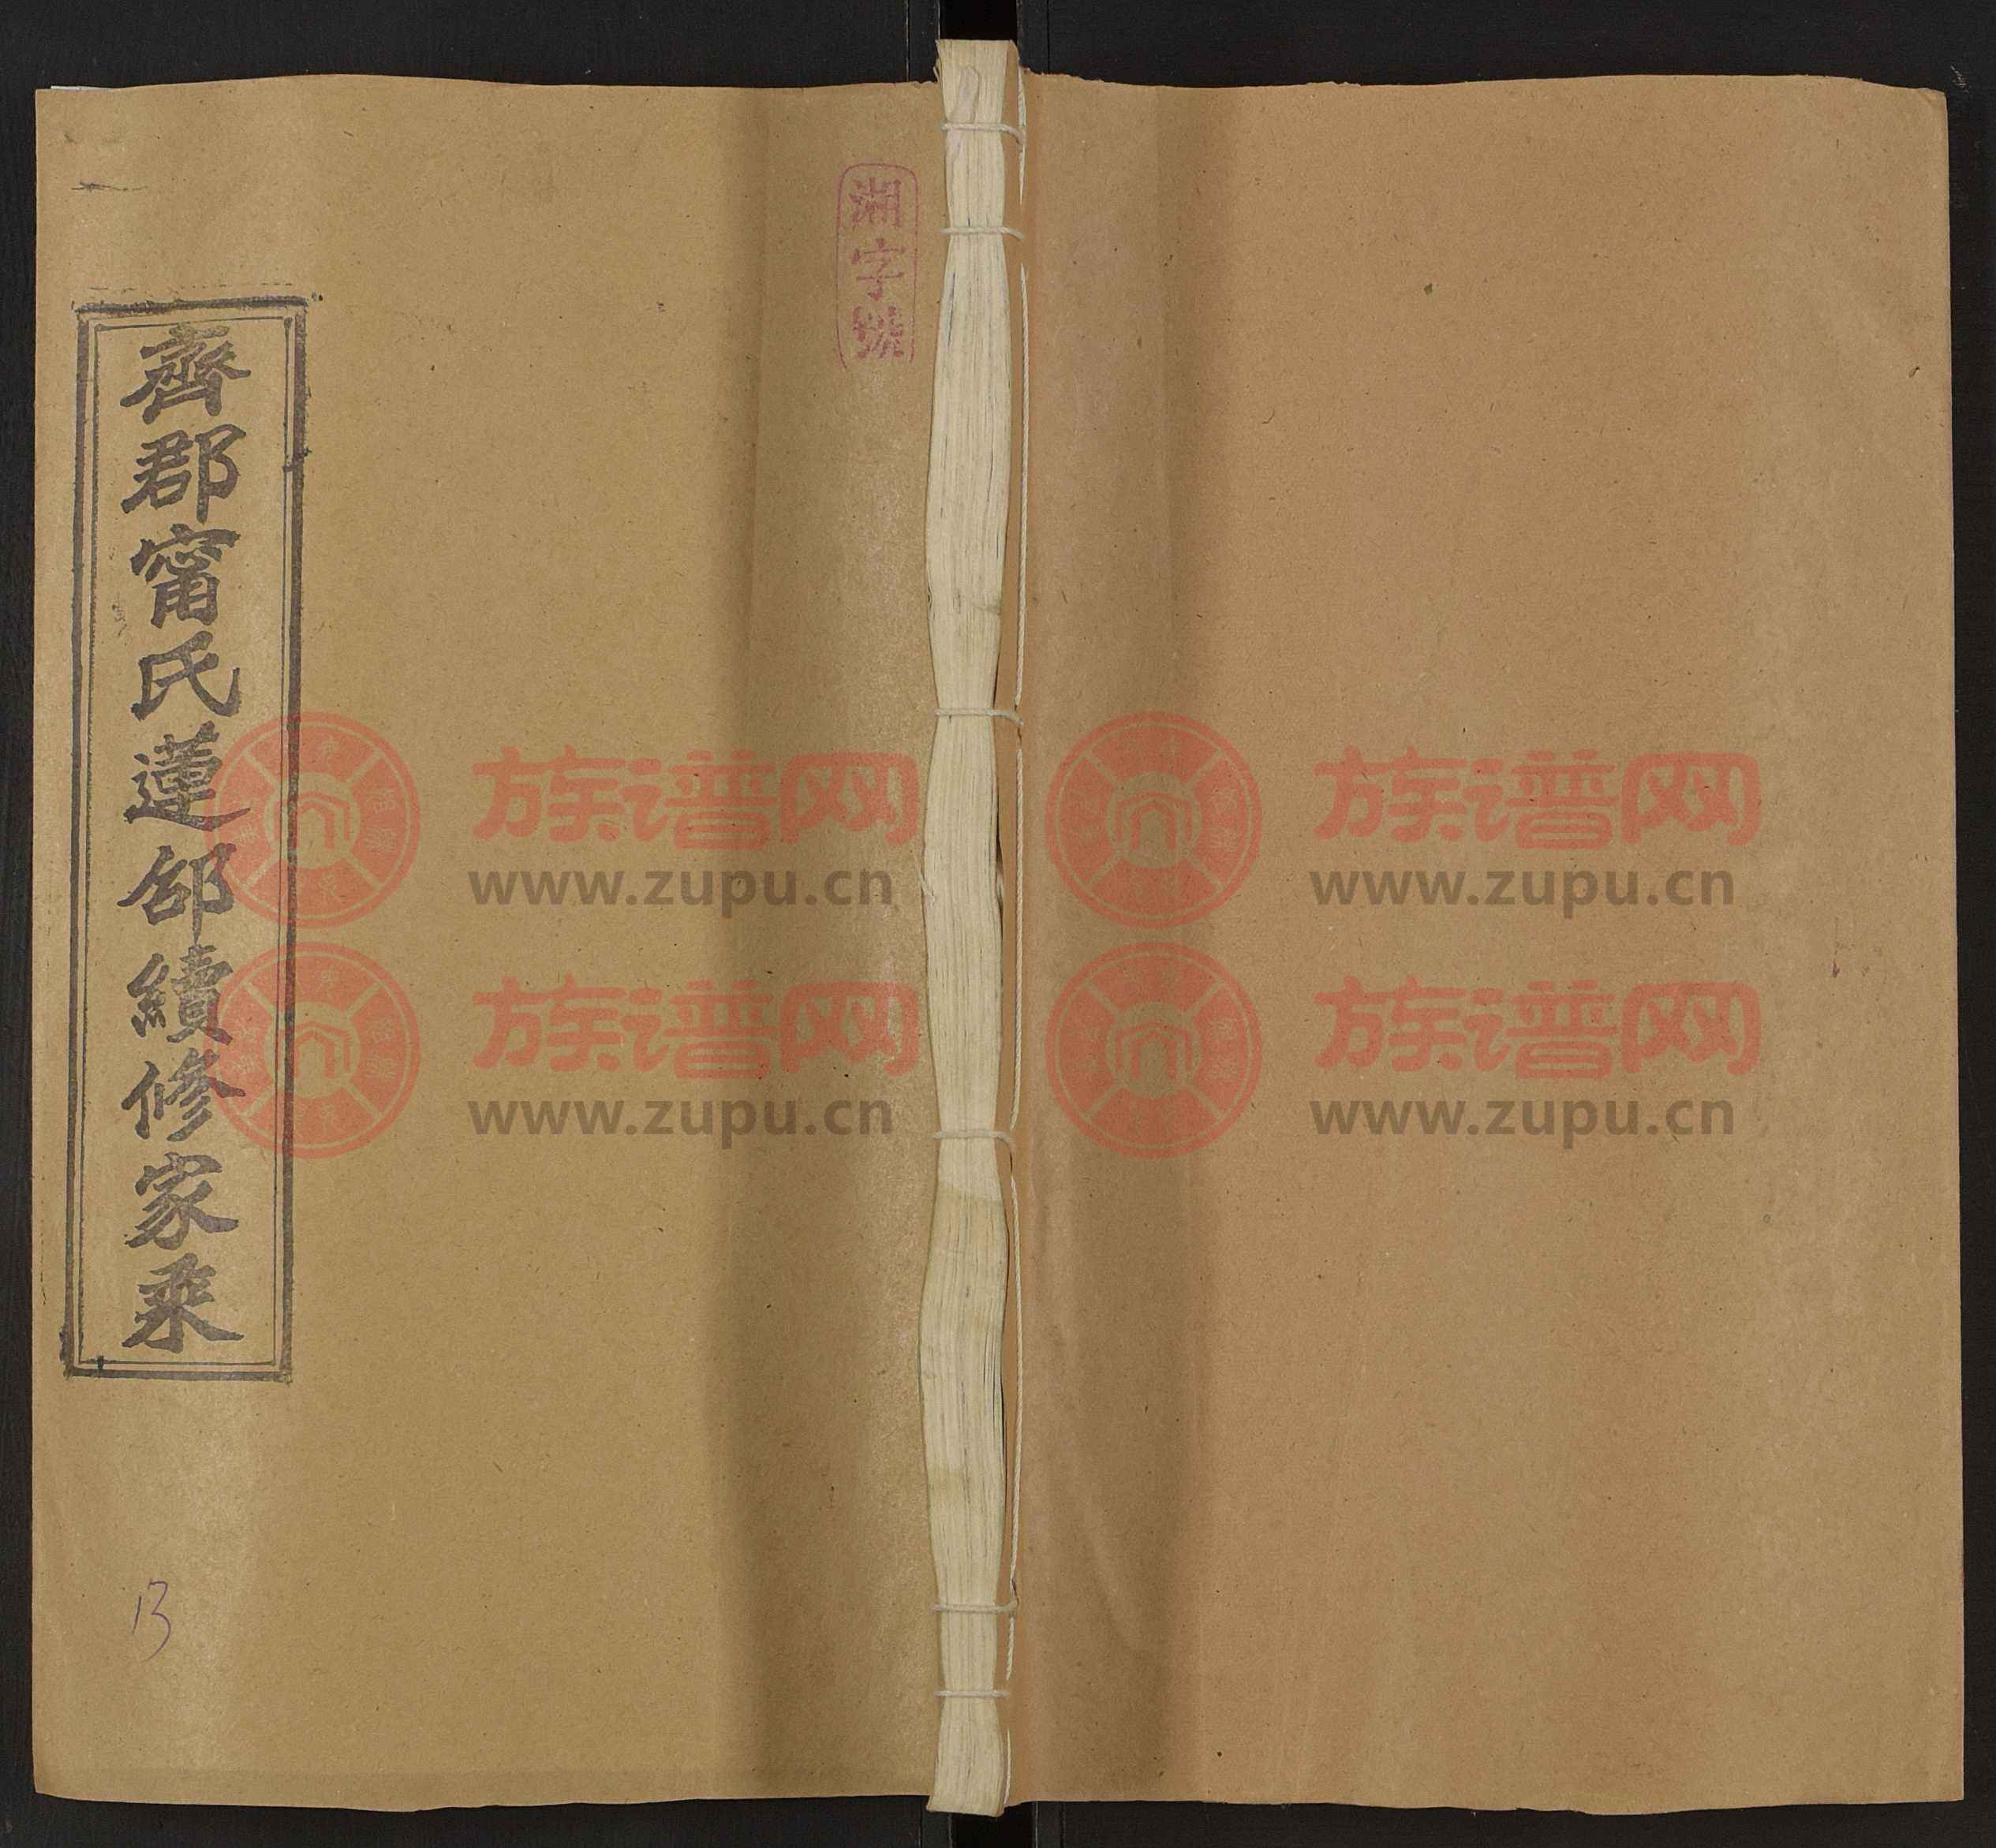 湘字號
齊郡甯氏蓮邰續修家乘
13
族谱网
www.zupu.cn
族谱网
www.zupu.cn
族谱网
www.zupu.cn
族谱网
www.zupu.cn